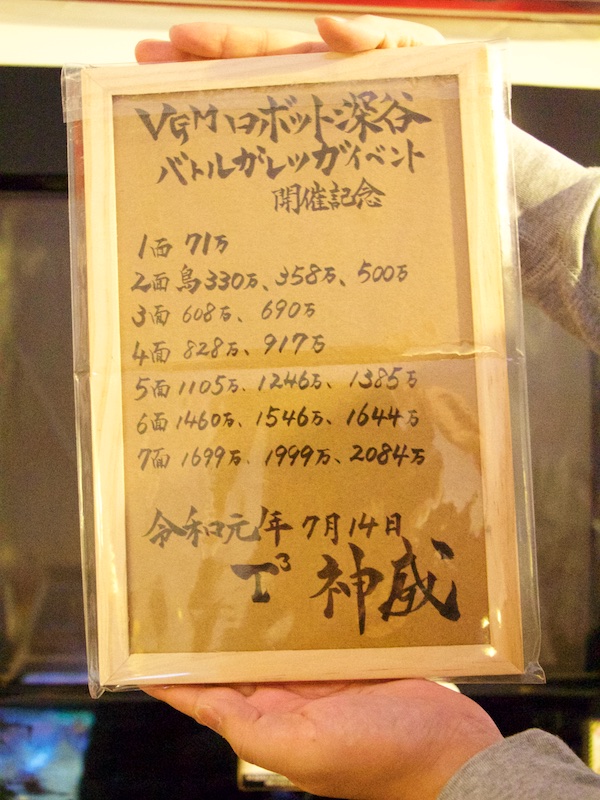 VGMロボット深谷
バトルガレッガイベント
開催記念
1面 71万
2面 鳥330万、358万、500万
3面 608万、690万
4面 828万、917万
5面 1105万、1246万、1385万
6面 1460万、1546万、1644万
7面 1699万、1999万、2084万
令和元年 7月14日
T³ 神威